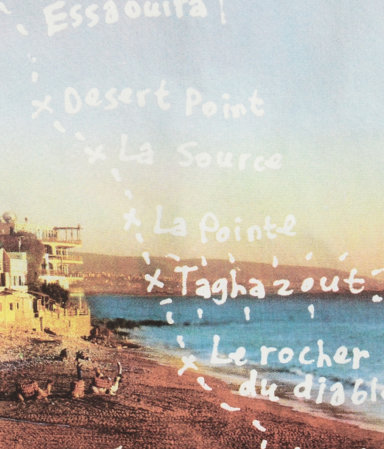 Essaouira!
Desert Point
La Source
La Pointe
Taghazout
Le rocher
du diable